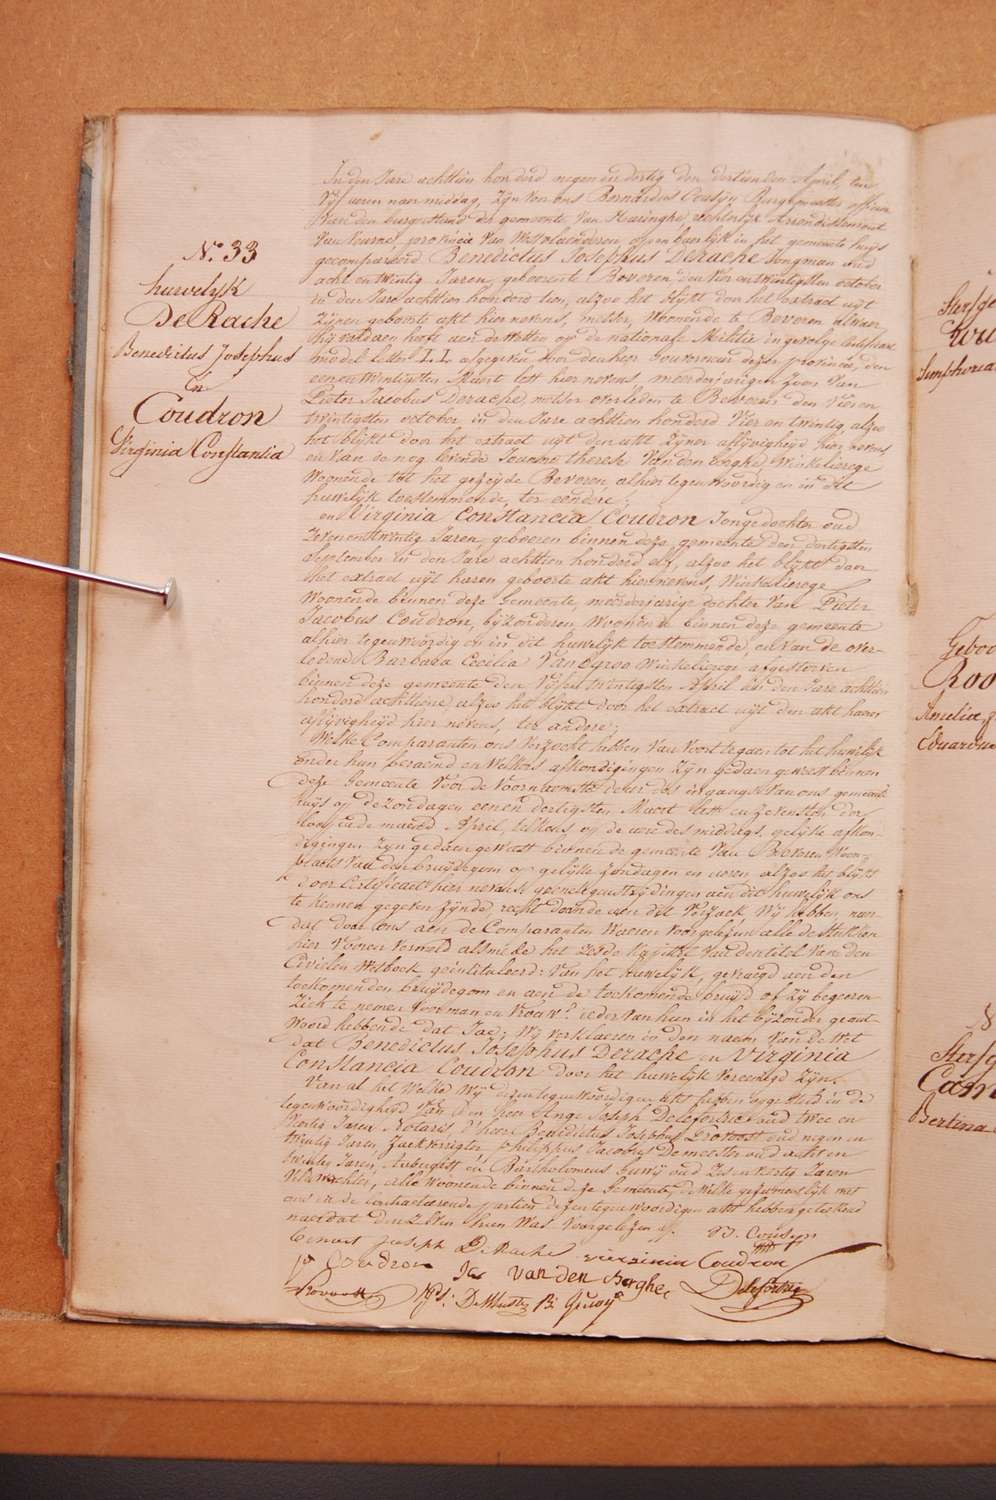 N.° 33
huwelijk
De Rache
Benedictus Josephus
En
Coudron
Virginia Constantia
In den Jare achttien honderd negen en dertig den dertienden April, ten
vijf uren naer middag, Zijn voor ons Bernardus Cousyn Burgemeester officier
van den burgerstand der gemeente van Haringhe, Arrondissement
van Veurne, provincie van Westvlaenderen openbaerlijk in het gemeente huys
gecompareerd Benedictus Josephus Derache Jongman oud
acht en twintig Jaren, geboren te Beveren den vier en twintigsten october
in den Jare achttien honderd tien, alzoo het blijkt door het extract uyt
Zijnen geboorte akt hier nevens, woonende te Beveren alwaer
hij voldaen heeft aen de wetten op de nationale Militie in gevolge Certificaet
model Letter I.I. afgegeven door den heer Gouverneur dezer provincie, den
een en twintigsten Maert lest hier nevens meerderjarigen zoon van
Pieter Jacobus Derache, overleden te Beveren den vier en
twintigsten october in den Jare achttien honderd vier en twintig, alzoo
het blijkt door het extract uyt den akt Zijner aflijvigheyd hier nevens
en van de nog levende Joanna Theresia Vanden Berghe, Winkelierege
woonende tot het gezeyde Beveren, alhier tegenwoordig en in dit
huwelijk toestemmende, ter eendere;
en Virginia Constancia Coudron Jonge dochter oud
Zeven en twintig Jaren, geboren binnen deze gemeente den dertigsten
September in den Jare achttien honderd elf, alzoo het blijkt door
het extract uijt haren geboorte akt hier nevens, Winkelierege
woonende binnen deze Gemeente, meerderjarige dochter van Pieter
Jacobus Coudron, bijzonderen, woonende binnen deze gemeente
alhier tegenwoordig en in dit huwelijk toestemmende, en van de over-
ledene Barbara Cecilia Winkelierege afgestorven
binnen deze gemeente den vijf en twintigsten April in den Jare achttien
honderd achttiene, alzoo het blijkt door het extract uijt den akt haerer
aflijvigheijd hier nevens, ter andere;
Welke Comparanten ons verzocht hebben van voort te gaen tot het huwelijk
onder hun beraemd en welkers afkondigingen Zijn gedaen geweest binnen
deze Gemeente voor de voornaemste deur des ingangs van ons gemeente
huijs op de zondagen eenen dertigsten Maert lest en zevensten der
loopende maend April, telkens op de ure des middags, gelijke afkon-
digingen Zijn gedaen geweest binnen de gemeente van Beveren woon-
plaets van den bruijdegom op gelijke zondagen en uren alzoo het blijkt
door Certificaet hier nevens geene tegenstrijdingen aen dit huwelijk ons
te kennen gegeven zijnde, recht doende aen dit verzoek, Wij hebben, naer
dat door ons aen de Comparanten waeren voorgelezen alle de stukken
hier vooren vermeld alsmede het zesde Kapittel van den titel van den
Civielen Wetboek geintituleerd: van het huwelijk, gevraegd aen den
toekomenden bruijdegom en aen de toekomende bruijd of Zij begeeren
Zich te nemen voor man en vrouw; ieder van hun in het bijzonder geant-
woord hebbende dat Jae; Wij verklaeren in den naem van de Wet
dat Benedictus Josephus Derache en Virginia
Constancia Coudron door het huwelijk vereenigd Zijn.
Van al het welke wij dezen tegenwoordigen akt hebben opgesteld in de
tegenwoordigheyd van den heer Ange Joseph Delefortrie oud twee en
Jaren Notaris, d'heer Benedictus Josephus Provoost oud negen en
twintig Jaren, Zaekverrigter, Philippus Jacobus Demeester oud acht en
twintig Jaren, en Bartholomeus Guwij oud Zes en veertig Jaren
Veldwachter, alle woonende binnen deze Gemeente, de welke gezamentlijk met
ons en de contracteerende partien dezen tegenwoordigen akt hebben geteekend
naer dat den Zelven hun was voorgelezen
B. Cousyn
benoit joseph DeRache virginia Coudron
pj Coudron Jts van den Berghe Delefortrie
Provoost Ph: Demeester B: Guwij
Geboo
Roo
Amelia
Eduardus
Cam
Bertina